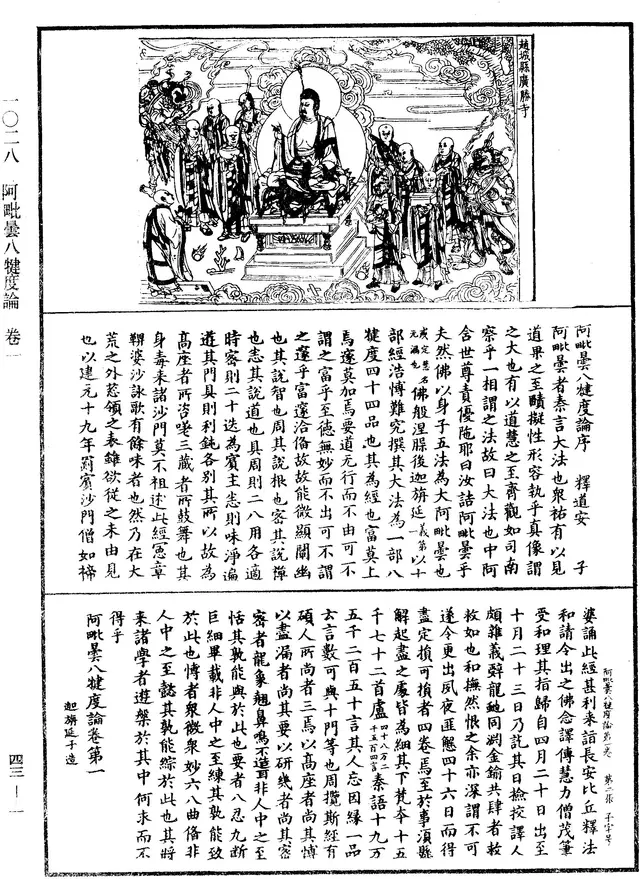 趙城縣廣勝寺
阿毗曇八犍度論序　釋道安　子
阿毗曇者秦言大法也衆祐有以見
道果之至賾擬性形容執乎真像謂
之大也有以道慧之至齊觀如司南
察乎一相謂之法故曰大法也中阿
含世尊責優陁耶曰汝詰阿毗曇乎
夫然佛以身子五法為大阿毗曇也
戒定慧名无漏也佛般涅槃後迦旃延義第一以十
部經浩博難究撰其大法為一部八
犍度四十四品也其為經也富莫上
焉邃莫加焉要道无行而不由可不
謂之富乎至德無妙而不出可不謂
之邃乎富邃洽備故故能微顯闡幽
也其說智也周其說根也密其說禪
也悉其說道也具周則二八用各適
時密則二十迭為賓主悉則味淨遍
遊其門具則利鈍各別其所以故為
高座者所咨嗟三藏者所鼓舞也其
身毒来諸沙門莫不祖述此經憲章
鞞婆沙詠歌有餘味者也然乃在大
荒之外葱領之表雖欲從之未由見
也以建元十九年罽賓沙門僧如禘
阿毗曇八犍度論第一卷　第二張　子字号
婆誦此經甚利来詣長安比丘釋法
和請令出之佛念譯傳慧力僧茂筆
受和理其指歸自四月二十日出至
十月二十三日乃訖其日檢挍譯人
頗雜義辤龍虵同渊金鍮共肆者敕
敕如也和撫然恨之余亦深謂不可
遂令更出夙夜匪懈四十六日而得
盡定損可損者四卷焉至於事須懸
解起盡之處皆為細其下梵本十五
千七十二首盧四十八万二千三百四言秦語十九万
五千二百五十言其人忘因緣一品
云言數可與十門等也周攬斯經有
碩人所尚者三焉以高座者尚其博
以盡漏者尚其要以研幾者尚其密
密者龍象翹鼻鳴不造耳非人中之至
恬其孰能與於此也要者八忍九斷
巨細畢載非人中之至練其孰能致
於此也博者衆微衆妙六八曲備非
人中之至懿其孰能綜於此也其將
来諸學者遊槃於其中何求而不
得乎
阿毗曇八犍度論卷第一
迦旃延子造
一〇二八　阿毗曇八犍度論　卷一
四三—一